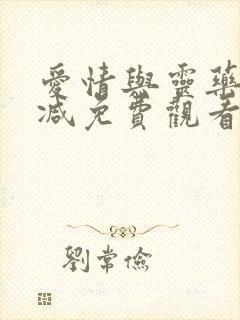 愛情與靈藥
減免費觀看
劉常儉